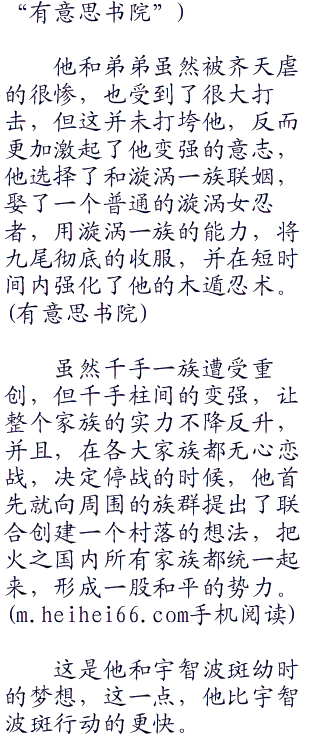 “有意思书院”)
他和弟弟虽然被齐天虐
的很惨，也受到了很大打
击，但这并未打垮他，反而
更加激起了他变强的意志，
他选择了和漩涡一族联姻，
娶了一个普通的漩涡女忍
者，用漩涡一族的能力，将
九尾彻底的收服，并在短时
间内强化了他的木遁忍术。
(有意思书院)
虽然千手一族遭受重
创，但千手柱间的变强，让
整个家族的实力不降反升，
并且，在各大家族都无心恋
战，决定停战的时候，他首
先就向周围的族群提出了联
合创建一个村落的想法，把
火之国内所有家族都统一起
来，形成一股和平的势力。
(m.heihei66.com手机阅读)
这是他和宇智波斑幼时
的梦想，这一点，他比宇智
波斑行动的更快。